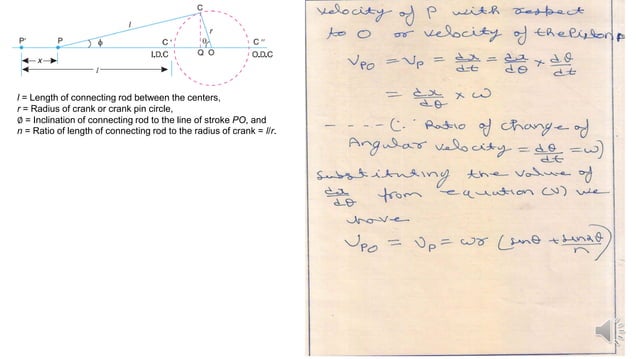 C
l
r
P'
P
ϕ
C'
θ
C"
I,D,C
Q
O
O,D,C
x
l
l = Length of connecting rod between the centers,
r = Radius of crank or crank pin circle,
∅ = Inclination of connecting rod to the line of stroke PO, and
n = Ratio of length of connecting rod to the radius of crank = l/r.
velocity of P with respect
to O or velocity of the Piston P
V_PO = V_P = dx/dt = dx/dθ × dθ/dt
= dx/dθ × ω
- - - - (∵ Ratio of change of
Angular velocity = dθ/dt = ω)
substituting the value of
dx/dθ from equation (v) we
have
V_PO = V_P = ωr (sinθ + sin2θ/n)